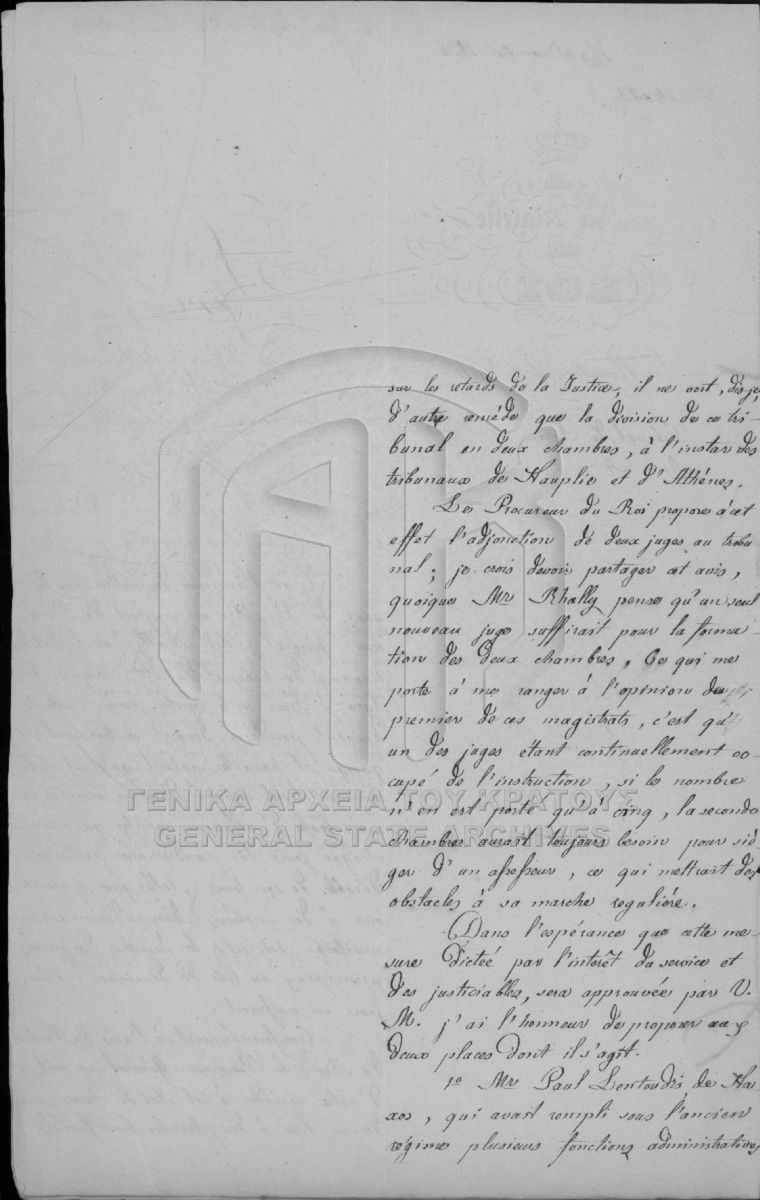 sur les retards de la Justice, il ne voit, dis-je,
d'autre remède que la division de ce tri-
bunal en deux chambres, à l'instar des
tribunaux de Nauplie et d'Athénes.
Le Procureur du Roi propose à cet
effet l'adjonction de deux juges au tribu
nal; je crois devoir partager cet avis,
quoique Mr Rhally pense qu'un seul
nouveau juge suffirait pour la forma-
tion des deux chambres. Ce qui me
porte à me ranger à l'opinion du
premier de ces magistrats, c'est qu'
un des juges étant continuellement oc-
cupé de l'instruction, si le nombre
n'en est porté qu'à cinq, la seconde
chambre aurait toujours besoin pour sié-
ger d'un assesseur, ce qui mettrait des
obstacles à sa marche reguliére.
Dans l'espérance que cette me-
sure dicteé par l'interêt du service et
des justiciables, sera approuvée par V.
M. j'ai l'honneur de proposer aux
deux places dont il s'agit.
1º Mr Paul Lentoudis de Na-
xos, qui avait rempli sous l'ancien
régime plusieurs fonctions administratives
ΓΕΝΙΚΑ ΑΡΧΕΙΑ ΤΟΥ ΚΡΑΤΟΥΣ
GENERAL STATE ARCHIVES